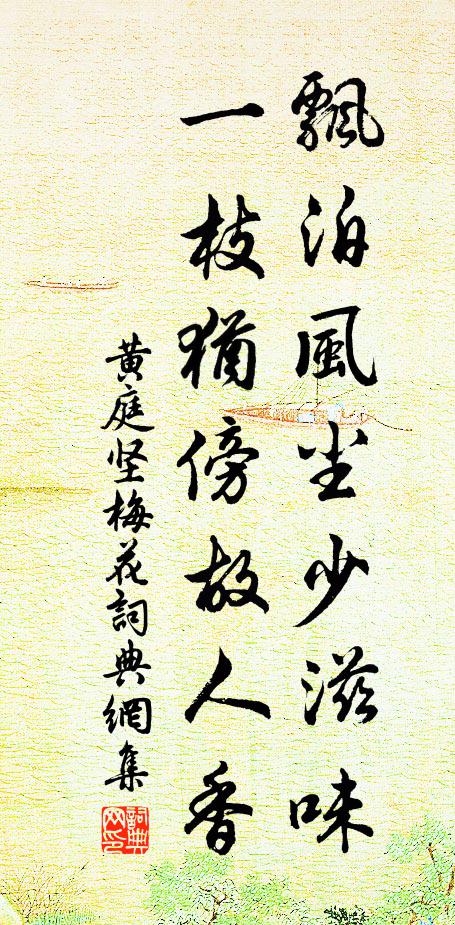 飄泊風尘少滋味
一枝猶傍故人香
黄庭坚梅花詞典網集
詞典網印